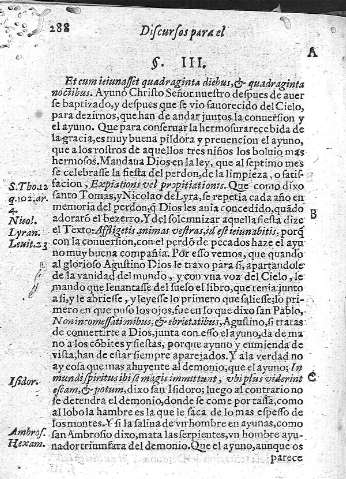 288
Discursos para el
A
§. III.
Et cum ieiunasset quadraginta diebus, & quadraginta
noctibus. Ayunò Christo Señor nuestro despues de auer
se baptizado, y despues que se vio fauorecido del Cielo,
para dezirnos, que han de andar juntos la conuersion y
el ayuno. Que para conseruar la hermosura recebida de
la gracia, es muy buena pildora y preuencion el ayuno,
que a los rostros de aquellos tres niños los boluio mas
hermosos. Mandaua Dios en la ley, que al septimo mes
se celebrasse la fiesta del perdon, de la limpieza, o satis-
facion, Expiationis vel propitiationis. Que como dixo
santo Tomas, y Nicolao de Lyra, se repetia cada año en
memoria del perdon, q̃ Dios les auia concedido, quãdo
adoraró el bezerro. Y del solemnizar aquella fiesta dize
el Texto: Affligetis animas vestras, id est ieiunabitis, porq̃
con la conuersion, con el perdõ de pecados haze el ayu
no muy buena compañia. Por esso vemos, que quando
al glorioso Agustino Dios le traxo para si, apartandole
de la vanidad del mundo, y con vna voz del Cielo, le
mando que leuantasse del suelo el libro, que tenia junto
a si, y le abriesse, y leyesse lo primero que saliesse; lo pri-
mero en que puso los ojos, fue en lo que dixo san Pablo,
Non in comessationibus, & ebrietatibus, Agustino, si tratas
de conuertirte a Dios, junta con esso el ayuno, da de ma
no a los cõbites y fiestas, porque ayuno y enmienda de
vista, han de estar siempre aparejados. Y a la verdad no
ay cosa que mas ahuyente al demonio, que el ayuno; In
mundi spiritus ibi se magis immittunt, vbi plus viderint
escam, & potum, dixo san Isidoro; luego al contrario no
se detendra el demonio, donde se come por tassa, como
al lobo la hambre es la que le saca de lo mas espesso de
los montes. Y si la saliua de vn hombre en ayunas, como
san Ambrosio dixo, mata las serpientes, vn hombre ayu-
nador triunfara del demonio. Que el ayuno, aunque os
parece
S. Tho. 12
q. 102. ar.
4.
Nicol.
Lyran.
Leuit. 23
B
Isidor.
C
Ambros.
Hexam.